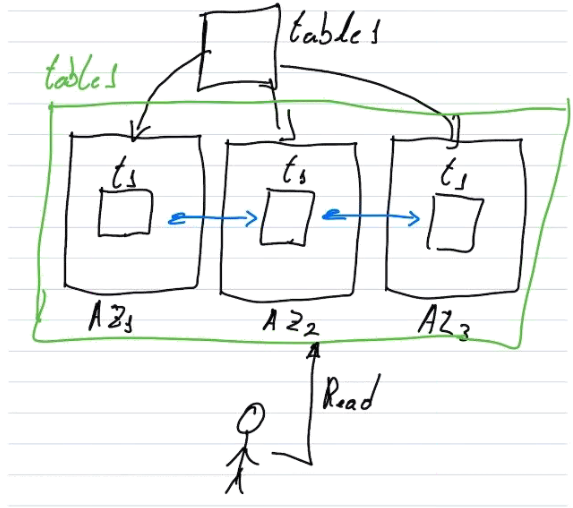 table1
table1
t1 t1 t1
AZ1 AZ2 AZ3
Read